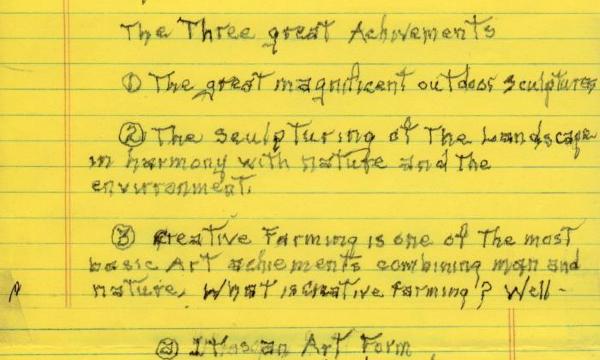 The Three great Achivements
① The great magnificent outdoor sculptures
② The sculpturing of The Landscape
in harmony with nature and the
environment.
③ Creative Farming is one of The most
basic Art achiements combining man and
nature. What is Creative farming? Well -
It is an Art Form